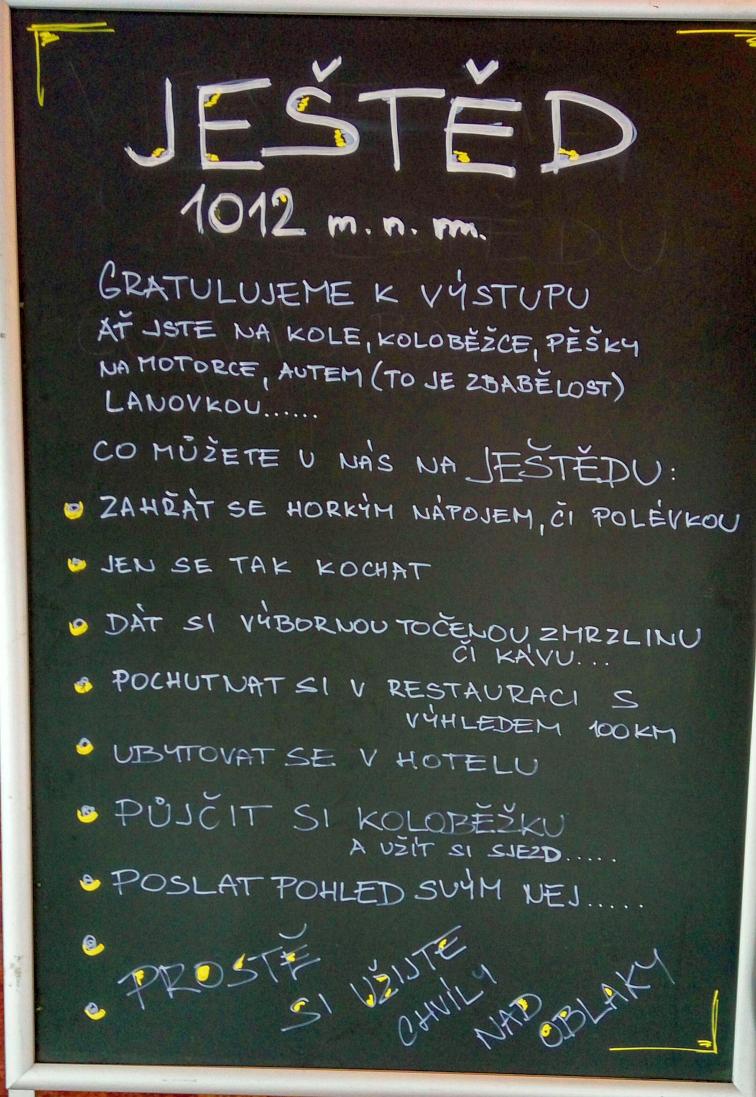 JEŠTĚD
1012 m. n. m.
GRATULUJEME K VÝSTUPU
AŤ JSTE NA KOLE, KOLOBĚŽCE, PĚŠKY
NA MOTORCE, AUTEM (TO JE ZBABĚLOST)
LANOVKOU......
CO MŮŽETE U NÁS NA JEŠTĚDU:
ZAHŘÁT SE HORKÝM NÁPOJEM, ČI POLÉVKOU
JEN SE TAK KOCHAT
DÁT SI VÝBORNOU TOČENOU ZMRZLINU
ČI KÁVU...
POCHUTNAT SI V RESTAURACI S
VÝHLEDEM 100KM
UBYTOVAT SE V HOTELU
PŮJČIT SI KOLOBĚŽKU
A UŽÍT SI SJEZD.....
POSLAT POHLED SVÝM NEJ.....
PROSTĚ
SI UŽIJTE
CHVÍLY
NAD
OBLAKY